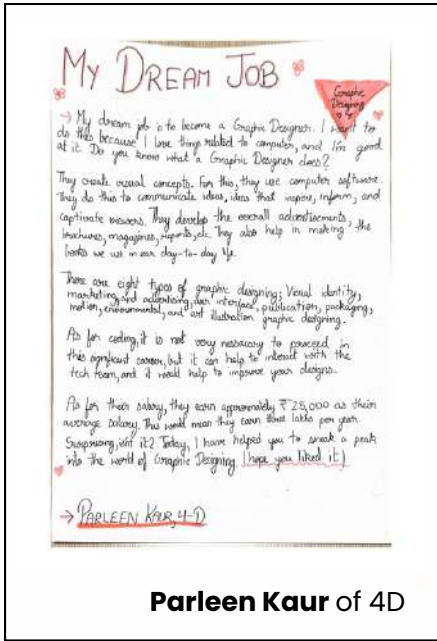 MY DREAM JOB
Graphic
Designing
→ My dream job is to become a Graphic Designer. I want to
do this because I love things related to computer, and I'm good
at it. Do you know what a Graphic Designer does?
They create visual concepts. For this, they use computer software.
They do this to communicate ideas, ideas that inspire, inform, and
captivate viewers. They develop the overall advertisements,
brochures, magazines, reports, etc. They also help in making the
books we use in our day-to-day life.
There are eight types of graphic designing; Visual identity,
marketing, and advertising, user interface, publication, packaging,
motion, environmental, and art illustration graphic designing.
As for coding, it is not very necessary to proceed in
this significant career, but it can help to interact with the
tech team, and it would help to improve your designs.
As for their salary, they earn approximately ₹25,000 as their
average salary. This would mean they earn three lakhs per year.
Surprising, isn't it? Today, I have helped you to sneak a peak
into the world of Graphic Designing. I hope you liked it)
→ PARLEEN KAUR, 4-D
Parleen Kaur of 4D